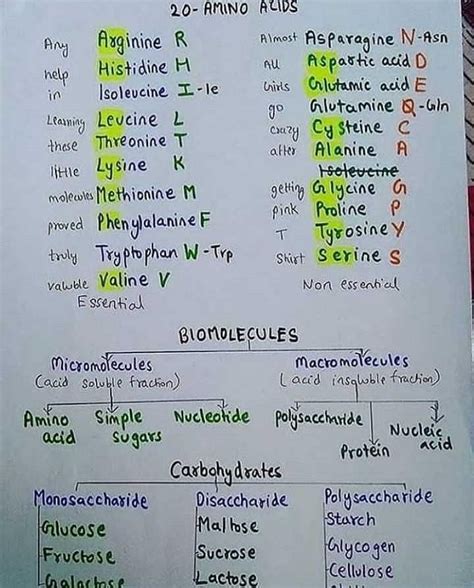 20- AMINO ACIDS
Any Arginine R
help Histidine H
in Isoleucine I-le
Learning Leucine L
these Threonine T
little Lysine K
molecules Methionine M
proved Phenylalanine F
truly Tryptophan W-Trp
valuble Valine V
Essential
Almost Asparagine N-Asn
All Aspartic acid D
Girls Glutamic acid E
go Glutamine Q-Gln
crazy Cysteine C
after Alanine A
Isoleucine
getting Glycine G
pink Proline P
T Tyrosine Y
Shirt Serine S
Non essential
BIOMOLECULES
Micromolecules
(acid soluble fraction)
Macromolecules
(acid insoluble fraction)
Amino acid
Simple sugars
Nucleotide
Polysaccharide
Protein
Nucleic acid
Carbohydrates
Monosaccharide
Glucose
Fructose
Galactose
Disaccharide
Maltose
Sucrose
Lactose
Polysaccharide
Starch
Glycogen
Cellulose